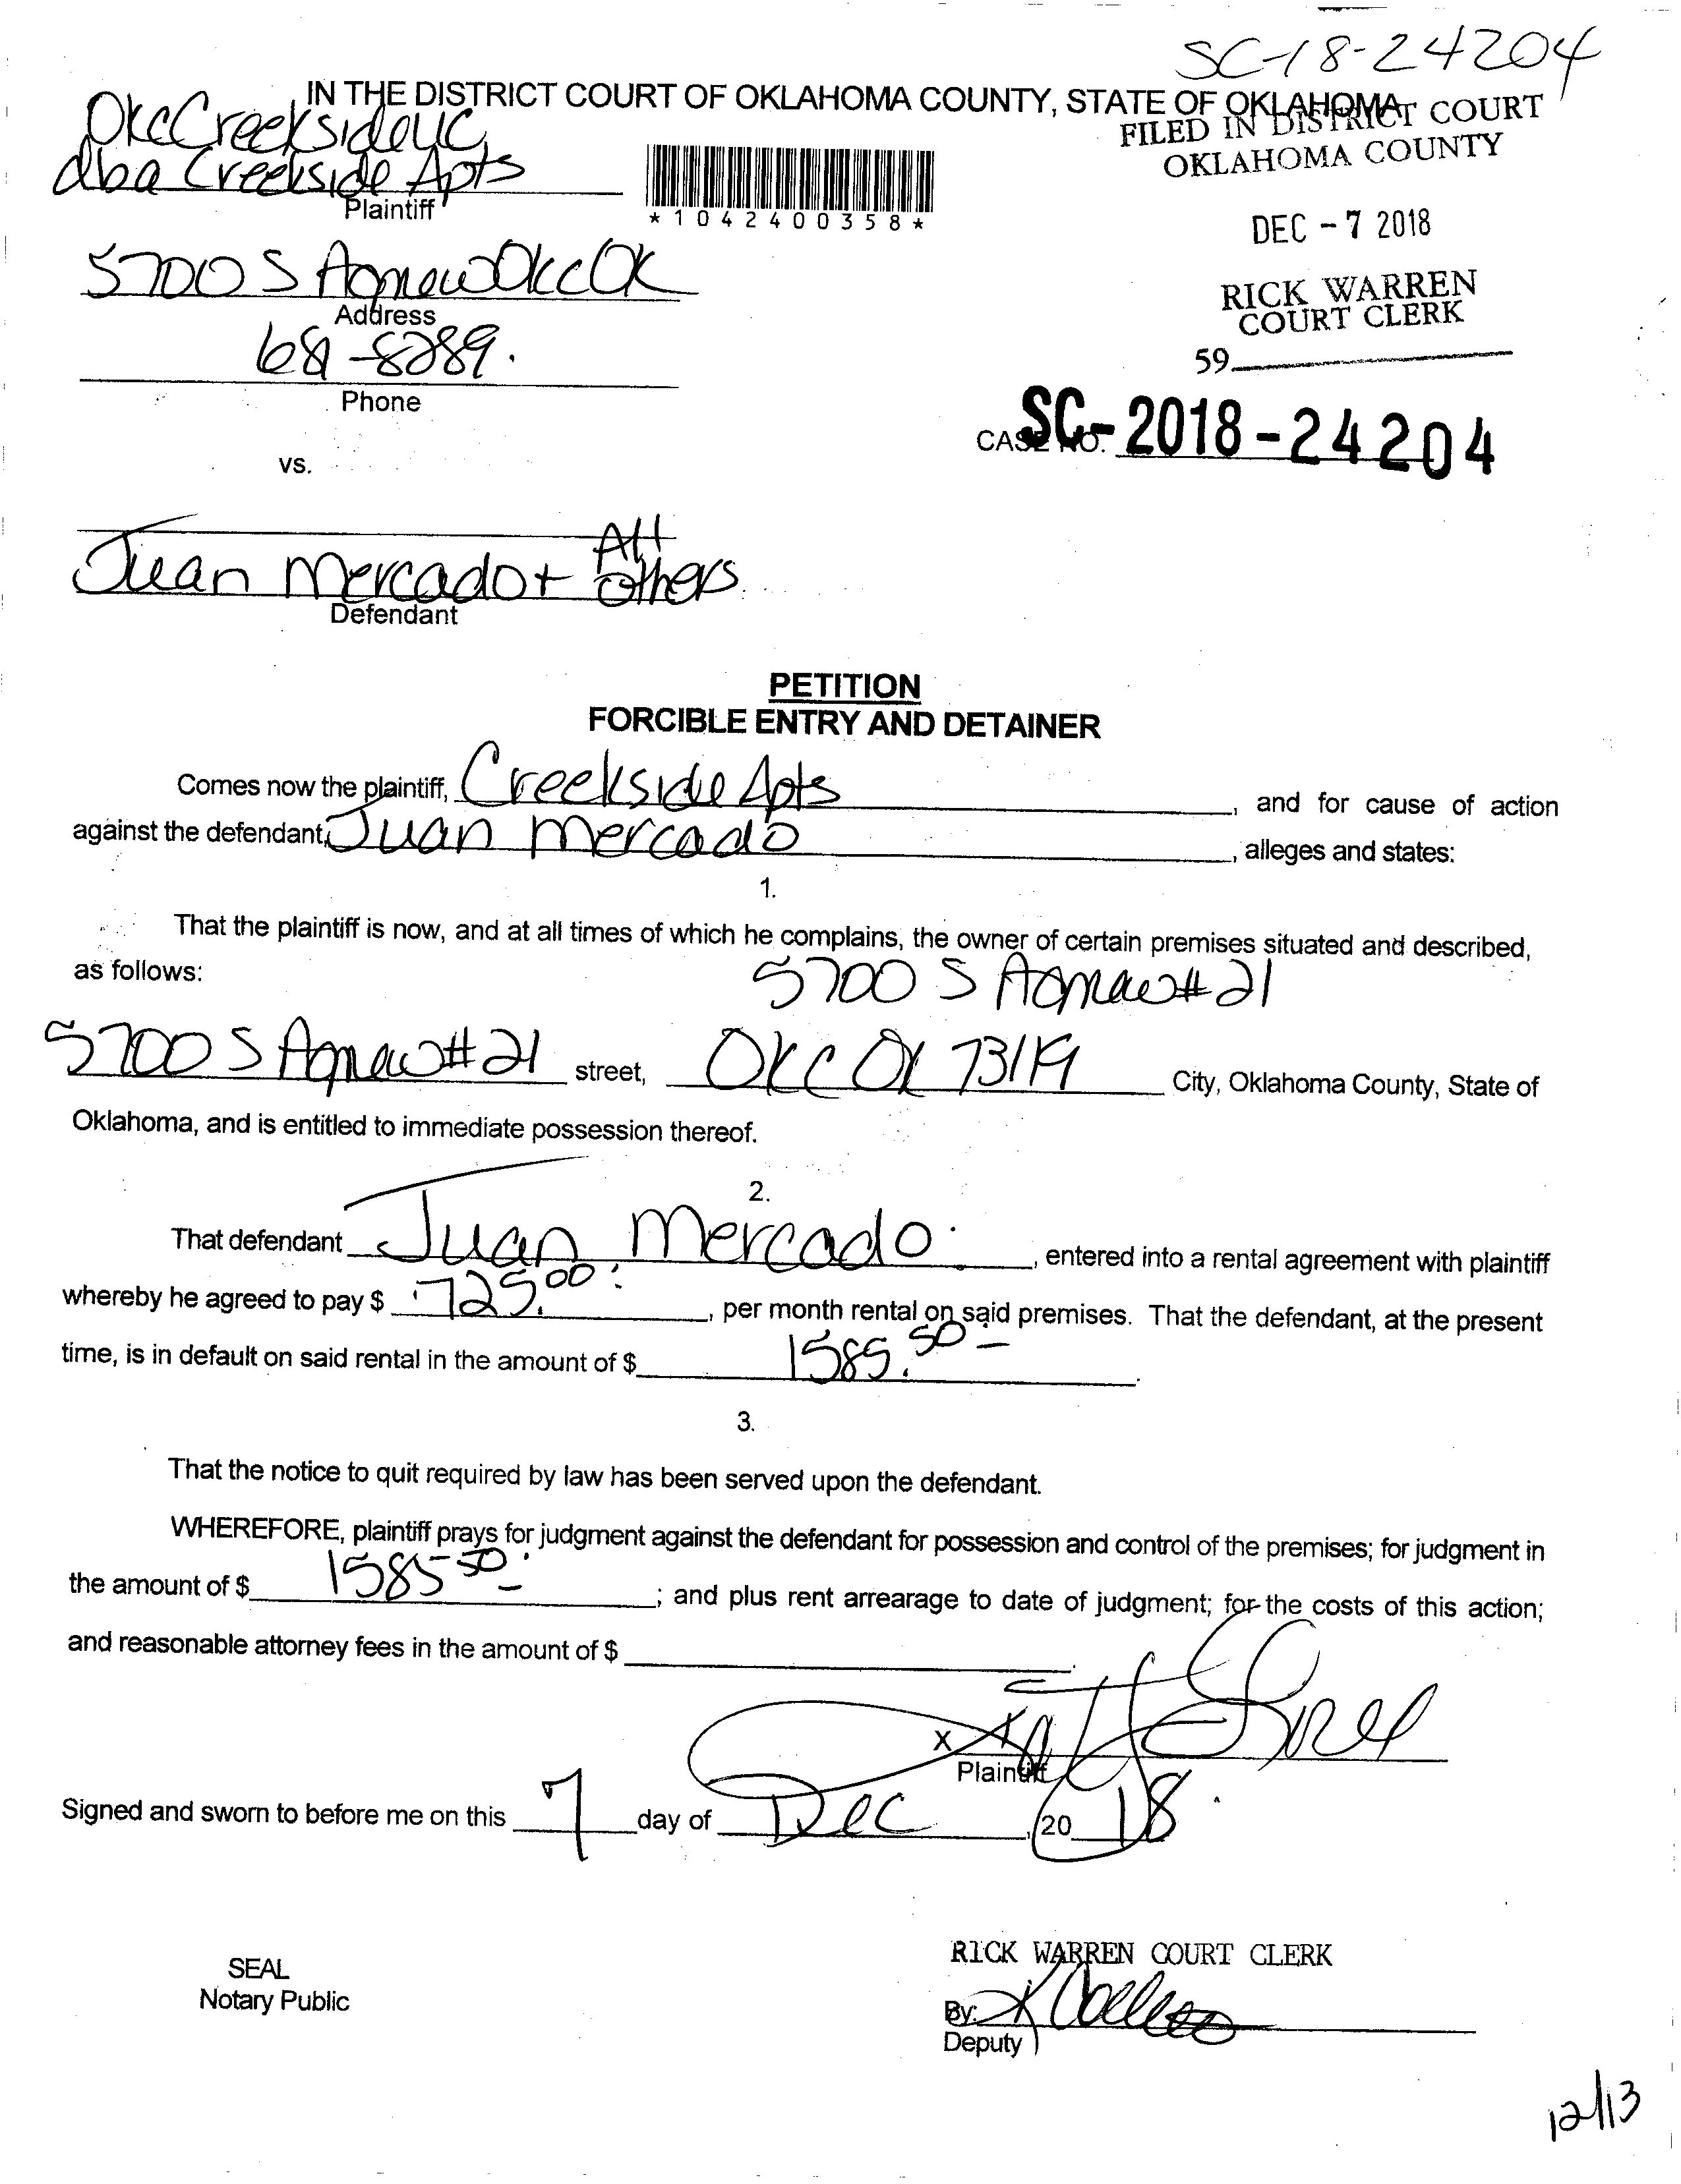 SC-18-24204
IN THE DISTRICT COURT OF OKLAHOMA COUNTY, STATE OF OKLAHOMA
FILED IN DISTRICT COURT
OKLAHOMA COUNTY
DEC - 7 2018
RICK WARREN
COURT CLERK
59
OKC Creekside LLC
dba Creekside Apts
Plaintiff
*1042400358*
5700 S Agnew OKC OK
Address
681-8289.
Phone
CASE NO. SC-2018-24204
vs.
Juan Mercado + All Others
Defendant
PETITION
FORCIBLE ENTRY AND DETAINER
Comes now the plaintiff, Creekside Apts, and for cause of action
against the defendant, Juan Mercado, alleges and states:
1.
That the plaintiff is now, and at all times of which he complains, the owner of certain premises situated and described,
as follows: 5700 S Agnew #21
5700 S Agnew #21 street, OKC OK 73119 City, Oklahoma County, State of
Oklahoma, and is entitled to immediate possession thereof.
2.
That defendant Juan Mercado, entered into a rental agreement with plaintiff
whereby he agreed to pay $ 725.00, per month rental on said premises. That the defendant, at the present
time, is in default on said rental in the amount of $ 1585.50.
3.
That the notice to quit required by law has been served upon the defendant.
WHEREFORE, plaintiff prays for judgment against the defendant for possession and control of the premises; for judgment in
the amount of $ 1585 50; and plus rent arrearage to date of judgment; for the costs of this action;
and reasonable attorney fees in the amount of $
X
Plaintiff
Signed and sworn to before me on this 7 day of Dec, 20 18
RICK WARREN COURT CLERK
SEAL
Notary Public
By:
Deputy
12/13